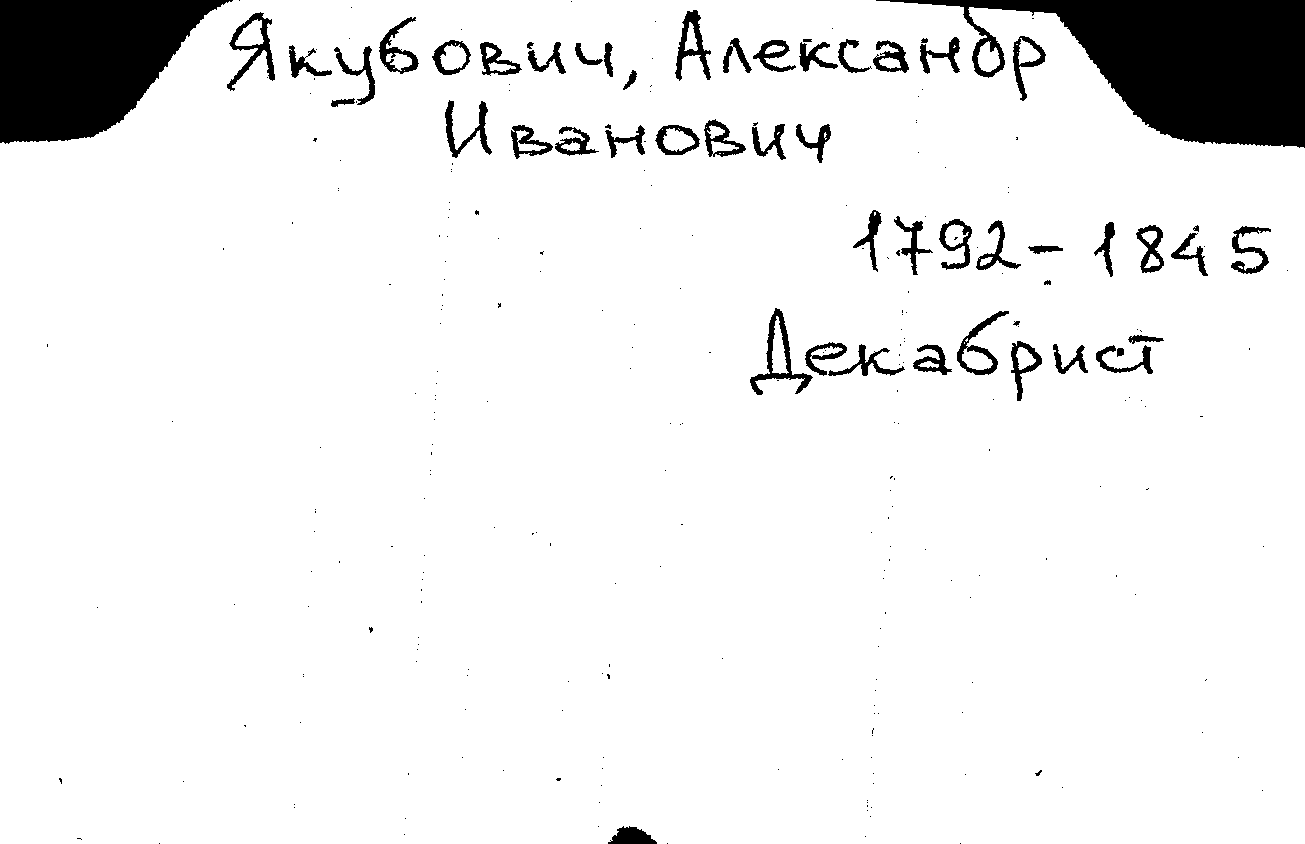 Якубович, Александр
Иванович
1792-1845
Декабрист